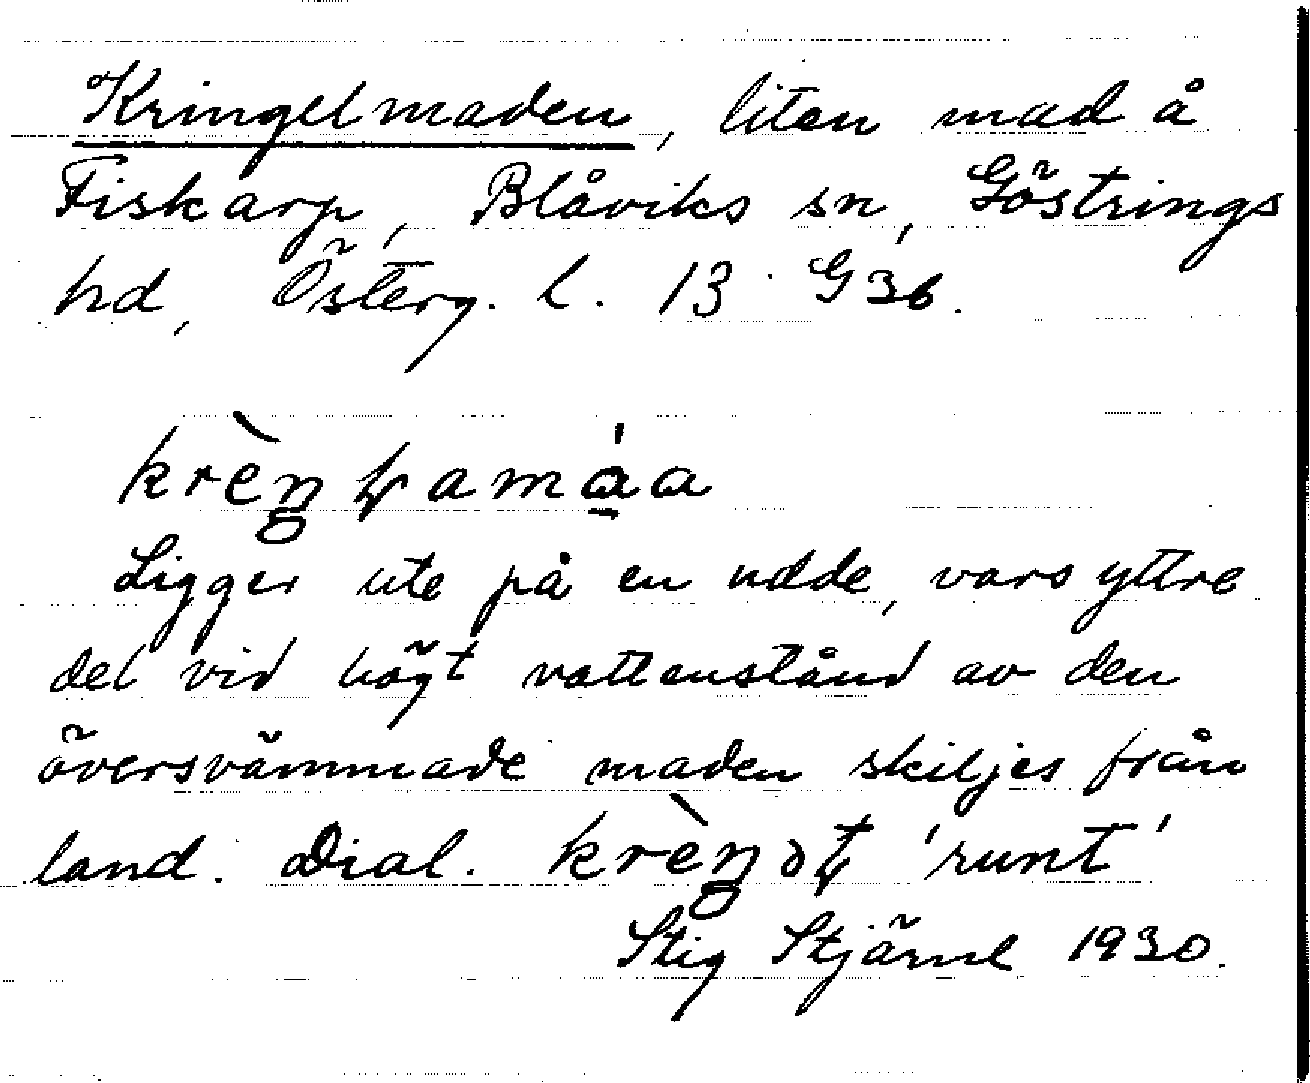 Kringelmaden, liten mad å
Fiskarp, Blåviks sn, Göstrings
hd, Österg. l. 13 G36.
Ligger ute på en udde, vars yttre
del vid högt vattenstånd av den
översvämmade maden skiljes från
land. Dial. 'runt'
Stig Stjärne 1930.